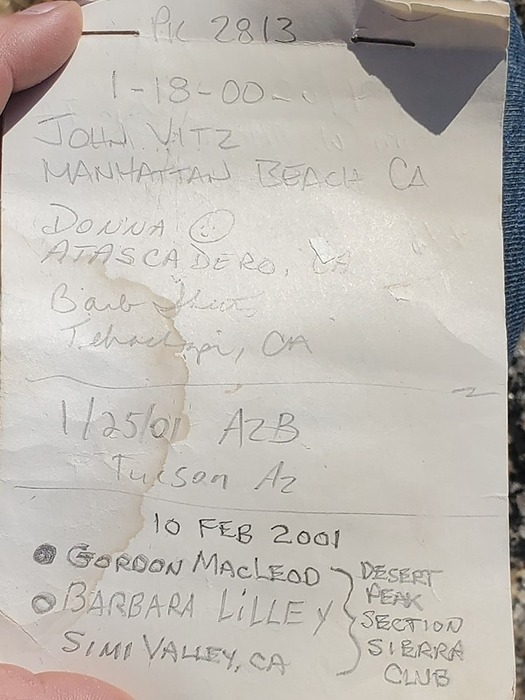 PK 2813
1-18-00
JOHN VITZ
MANHATTAN BEACH CA
DONNA
ATASCADERO, CA
Barb
Tehachapi, CA
1/25/01 AZB
Tucson Az
10 FEB 2001
GORDON MACLEOD
BARBARA LILLEY
SIMI VALLEY, CA
DESERT
PEAK
SECTION
SIERRA
CLUB